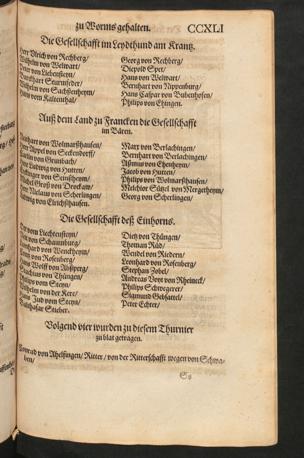 zu Worms gehalten. CCXLI
Die Gesellschafft im Leydthund am Krantz.
Herr Ulrich von Rechberg/
Wilhelm von Welwart/
von Liebenstein/
Burckhart Sturmfeder/
Wilhelm von Sachsenheym/
von Kaltenthal/
Georg von Rechberg/
Diepold Spet/
Hans von Welwart/
Bernhart von Nippenburg/
Hans Caspar von Bubenhofen/
Philips von Ehingen.
Auß dem Land zu Francken die Gesellschafft
im Bären.
von Wolmarßhausen/
von Seckendorff/
von Grunbach/
Ludwig von Hutten/
von Seinßheym/
Groß von Trockaw/
von Scherlingen/
von Elrichßhausen.
Marx von Berlachingen/
Bernhart von Berlachingen/
Aßmus von Ehenheym/
Jacob von Hutten/
Philips von Wolmarßhausen/
Melchior Sützel von Mergetheym/
Georg von Scherlingen/
Die Gesellschafft deß Einhorns.
von Liechtenstein/
von Schaumburg/
von Wenckheym/
von Rosenberg/
Wolff von Absperg/
von Thüngen/
von Steyn/
Wilhelm von der Kere/
von Steyn/
Balthasar Stieber.
Dietz von Thüngen/
Thoman Rüd/
Wendel von Riedern/
Leonhard von Rosenberg/
Stephan Zobel/
Andreas Voyt von Rheineck/
Philips Schwegerer/
Sigmund Gebsattel/
Peter Echter/
Volgend vier wurden zu diesem Thurnier
zu blat getragen.
Conrad von Ahelfingen/ Ritter/ von der Ritterschafft wegen von Schwa-
ben/